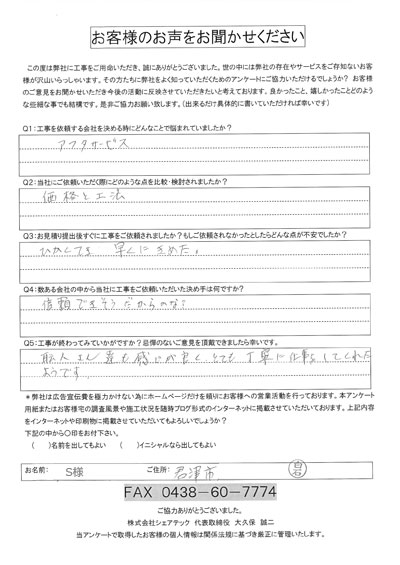 お客様のお声をお聞かせください
この度は弊社に工事をご用命いただき、誠にありがとうございました。世の中には弊社の存在やサービスをご存知ないお客
様が沢山いらっしゃいます。その方たちに弊社をよく知っていただくためのアンケートにご協力いただけるでしょうか？ お客様
のご意見をお聞かせいただき今後の活動に反映させていただきたいと考えております。良かったこと、嬉しかったことどのよう
な些細な事でも結構です。是非ご協力お願い致します。（出来るだけ具体的に書いていただければ幸いです）
Q1：工事を依頼する会社を決める時にどんなことで悩まれていましたか？
アフタサービス
Q2：当社にご依頼いただく際にどのような点を比較・検討されましたか？
価格と工法
Q3：お見積り提出後すぐに工事をご依頼されましたか？もしご依頼されなかったとしたらどんな点が不安でしたか？
早くにきめた。
Q4：数ある会社の中から当社に工事をご依頼いただいた決め手は何ですか？
信頼できそうだからのな？
Q5：工事が終わってみていかがですか？忌憚のないご意見を頂戴できましたら幸いです。
職人さん達も感じが良く とても 丁寧に仕事をしてくれた
ようです
＊弊社は広告宣伝費を極力かけない為にホームページだけを頼りにお客様への営業活動を行っております。本アンケート
用紙またはお客様宅の調査風景や施工状況を随時ブログ形式のインターネットに掲載させていただいております。上記内容
をインターネットや印刷物に掲載させていただいてもよろしいでしょうか？
下記の中から〇印をお付下さい。
（　）名前を出してもよい　（　）イニシャルなら出してもよい
お名前： S様 ご住所： 君津市
FAX 0438－60－7774
ご協力ありがとうございました。
株式会社シェアテック 代表取締役 大久保 誠二
当アンケートで取得したお客様の個人情報は関係法規に基づき厳正に管理いたします。